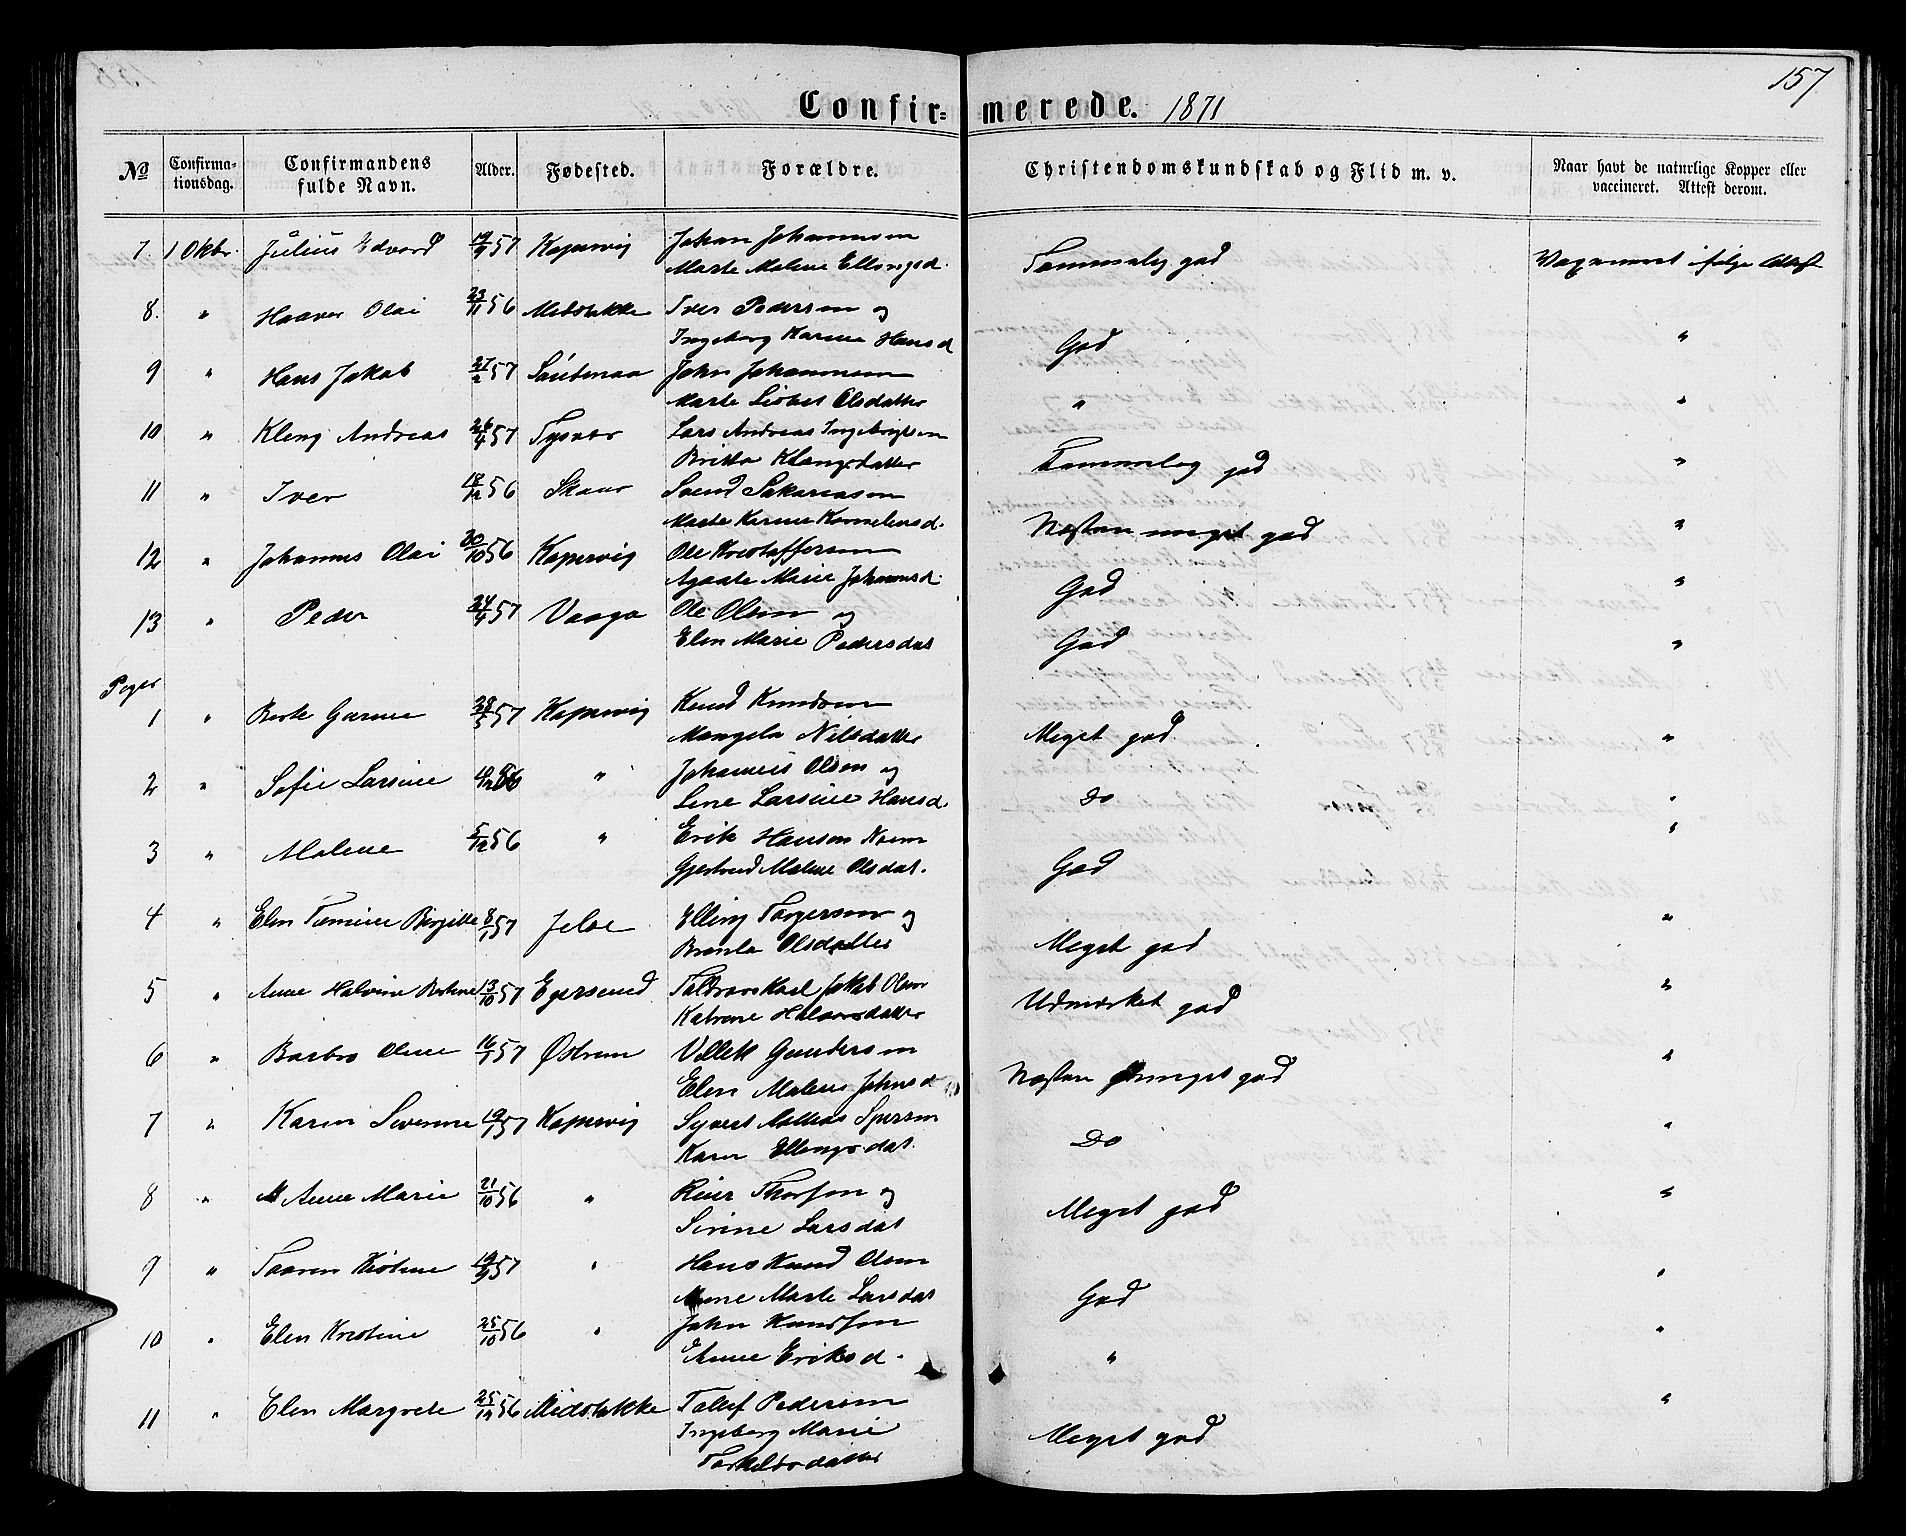 157
Confir= merede. 1871
No Confirma-tionsdag. Confirmandens fulde Navn. Alder. Fødested. Forældre. Christendomskundskab og Flid m. v. Naar havt de naturlige Kopper eller vaccineret. Attest derom.
7. 1 Oktbr. Julius Edvard 57 Kopervig Johan Johannesen
Marte Malene Ellingsd. Temmelig god ifølge Attest
8. " Haaver Olai 23/11 56 Midstøkke Iver Pedersen og
Ingeborg Karine Hansd God "
9 " Hans Jakob 57 John Johannesen
Marte Olsdatter " "
10 " Kleng Andreas 26/4 57 Tysvær Lars Andreas Ingebrigtsen
Britta Klengsdatter Temmelig god "
11 " Iver 18/12 56 Skaar Svend Sakariasen
Marte Karine Korneliusd. Næsten meget god "
12 " Johannes Olai 30/10 56 Kopervig Ole Kristoffersen
Agaate Marie Johannesd. God "
13 " Peder 57 Vaaga Ole Olsen og
Elen Marie Pedersdat God "
Piger
1 " 57 Kopervig Knud Knudsen
Mangela Nilsdatter Meget god "
2 " Sofie Larsine " Johannes Olsen og
Lene Larsine Hansd. Do "
3 " Malene 5/12 56 " Erik Hanson
Gjertrud Malene Olsdat. God "
4 " Elen Birgitte 8/1 57 Jeloe Elling Torgersen og
Olsdatter Meget god "
5 " Anne Halvine 13/10 57 Egersund Jakob Olsen
Katrine Halvorsdatter Udmærket god "
6 " Barbro Oline 16/1 57 Østrem Villik Gundersen
Elen Malene Johnsd Næsten meget god "
7 " Karen Severine 57 Kopervig Syvert
Karen Ellingsdat. Do "
8 " Anne Marie 21/10 56 " Thorsen og
Sirine Larsdat Meget god "
9 " Taaren 57 " Hans Knud Olsen
Anne Marte Larsdat God "
10 " Elen Kristine 25/10 56 " John Knudsen
Anne Eriksd. " "
11 " Elen Margrete 25/12 56 Midstøkke Tollef Pedersen
Ingeborg Marie
Torkildsdatter Meget god "